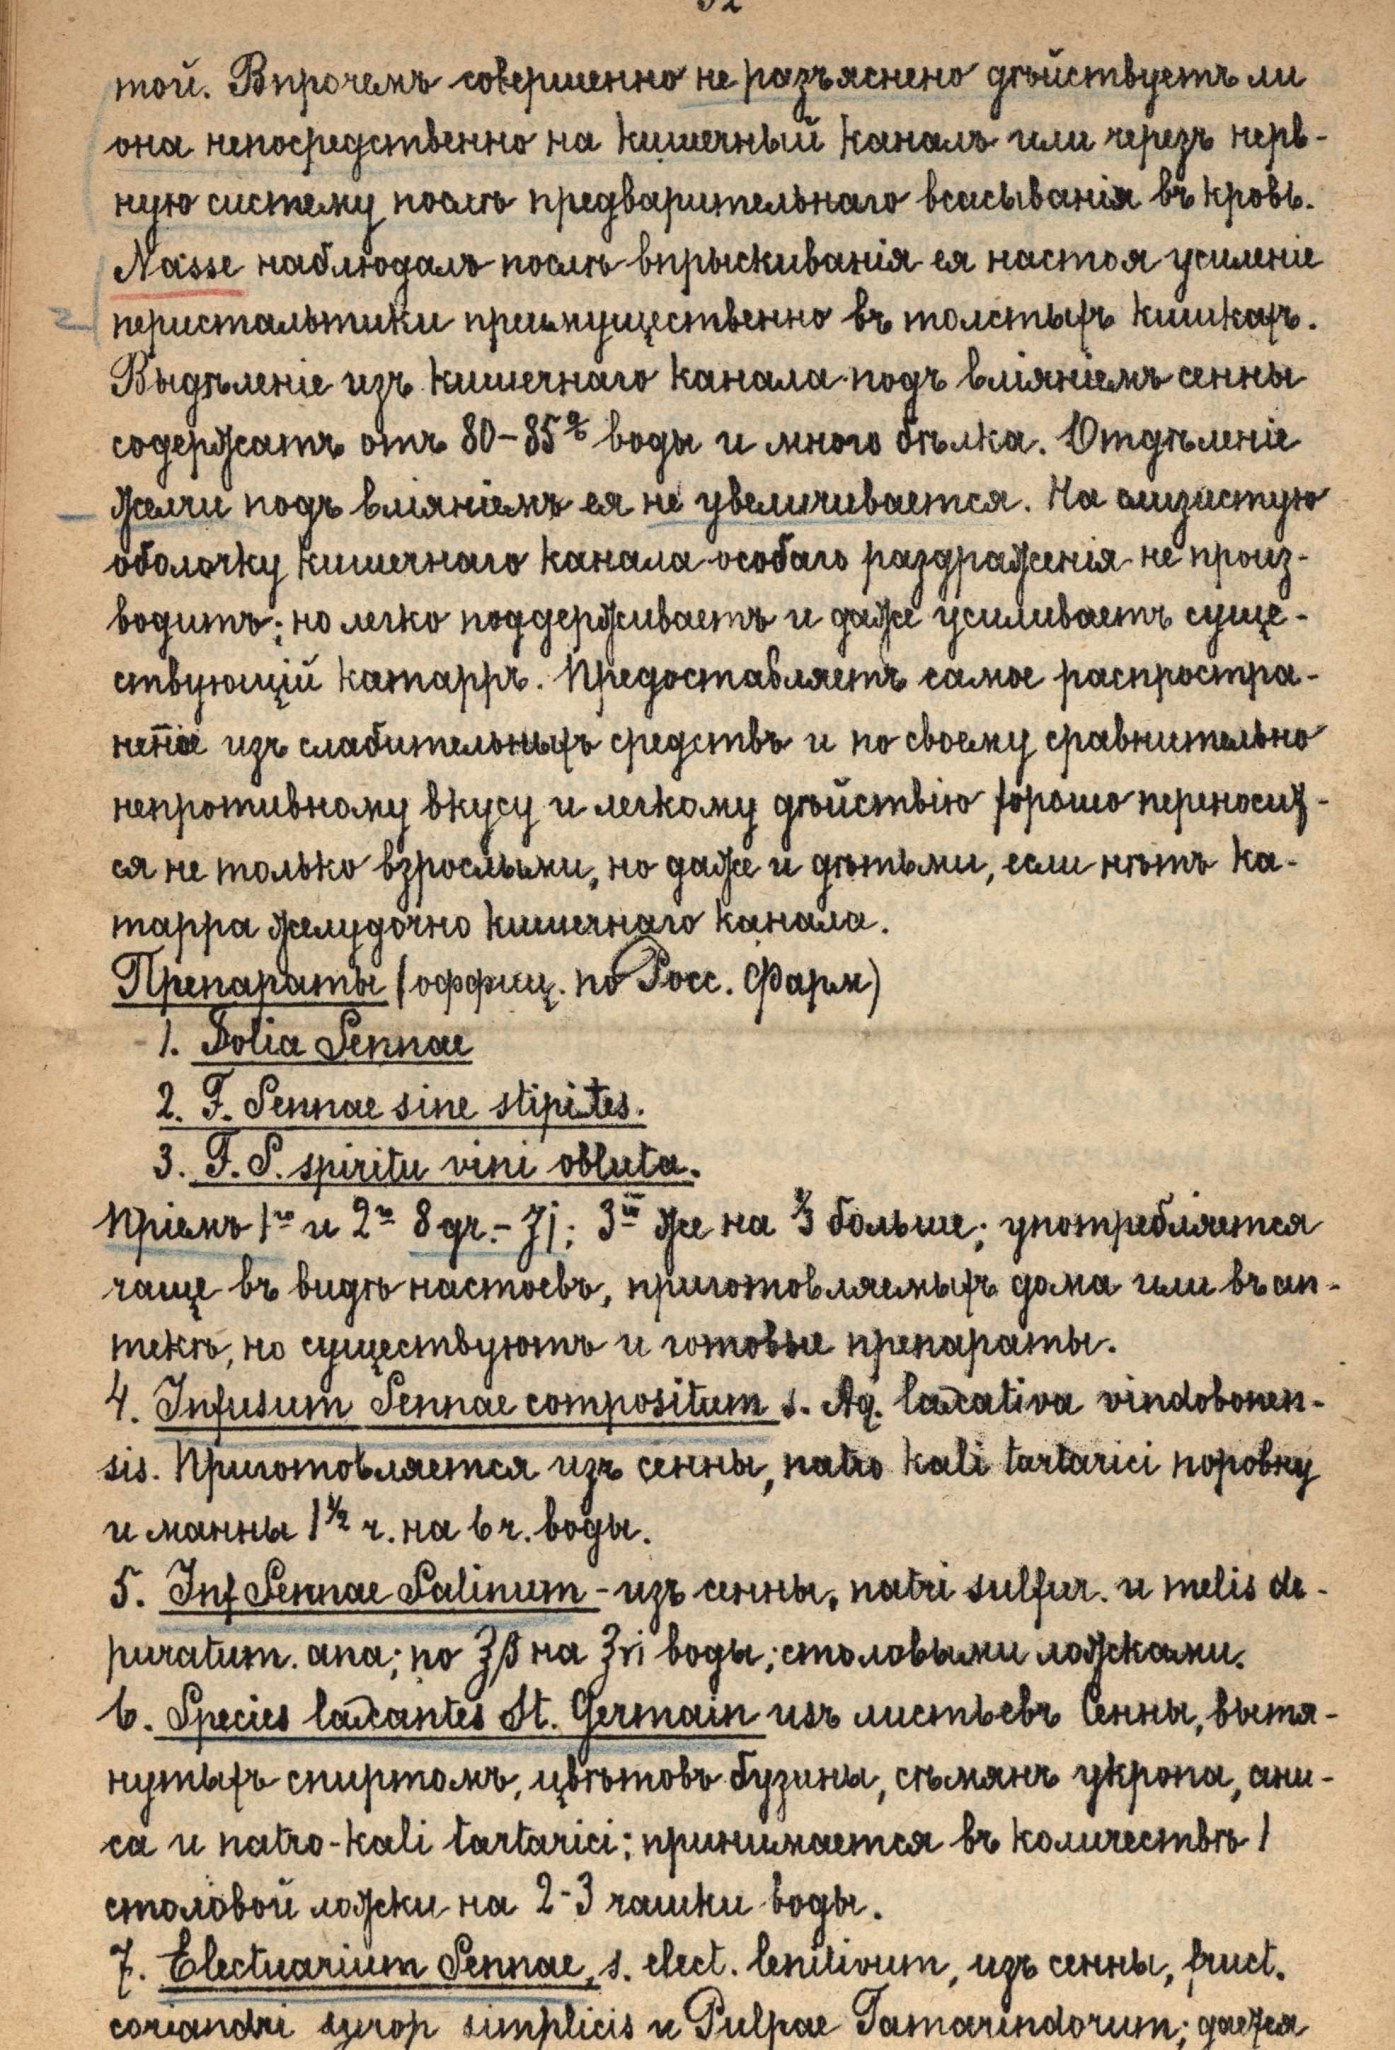 той. Впрочемъ совершенно не разъяснено дѣйствуетъ ли
она непосредственно на кишечный каналъ или черезъ нерв-
ную систему послѣ предварительнаго всасыванія въ кровь.
Nasse наблюдалъ послѣ впрыскиванія ея настоя усиленіе
перистальтики преимущественно въ толстыхъ кишкахъ.
Выдѣленіе изъ кишечнаго канала подъ вліяніемъ сенны
содержатъ отъ 80-85% воды и много бѣлка. Отдѣленіе
желчи подъ вліяніемъ ея не увеличивается. На слизистую
оболочку кишечнаго канала особаго раздраженія не произ-
водитъ; но легко поддерживаетъ и даже усиливаетъ суще-
ствующій катарръ. Предоставляетъ самое распростра-
изъ слабительныхъ средствъ и по своему сравнительно
непротивному вкусу и легкому дѣйствію хорошо переносит-
ся не только взрослыми, но даже и дѣтьми, если нѣтъ ка-
тарра желудочно кишечнаго канала.
Препараты (оффиц. по Росс. Фарм)
1. Folia Sennae
2. F. Sennae sine stipites.
3. F. S. spiritu vini obluta.
Пріемъ 1го и 2го 8 gr. - ʒj; 3ій же на ⅔ больше; употребляется
чаще въ видѣ настоевъ, приготовляемыхъ дома или въ ап-
текѣ, но существуютъ и готовые препараты.
4. Infusum Sennae compositum s. Aq. laxativa vindobonen-
sis. Приготовляется изъ сенны, natro kali tartarici поровну
и манны 1½ ч. на 6 ч. воды.
5. Inf Sennae Salinum - изъ сенны, natri sulfur. и melis de-
puratum. ana; по ʒβ на ʒvi воды; столовыми ложками.
6. Species laxantes St. Germain изъ листьевъ Сенны, вытя-
нутыхъ спиртомъ, цвѣтовъ бузины, сѣмянъ укропа, ани-
са и natro-kali tartarici; принимается въ количествѣ 1
столовой ложки на 2-3 чашки воды.
7. Electuarium Sennae, s. elect. lenitivum, изъ сенны, fruct.
coriandri syrop simplicis и Pulpae Tamarindorum; дается